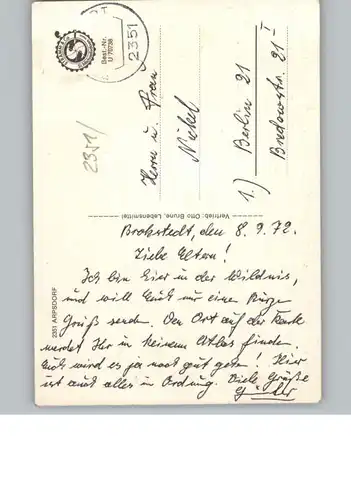 Best.-Nr.
U 78738
2351
2351/
Herrn u. Frau
Nickel
1.) Berlin 21
Bredowstr. 21 I
Vertrieb: Otto Brune, Lebensmittel
2351 ARPSDORF
Brokstedt, den 8.9.72.
Liebe Eltern!
Ich bin hier in der Wildnis,
und will Euch nur eine kurze
Gruß senden. Den Ort auf der Karte
werdet Ihr in keinem Atlas finden.
Euch wird es ja noch gut gehen! Hier
ist auch alles in Ordnung. Viele Grüße